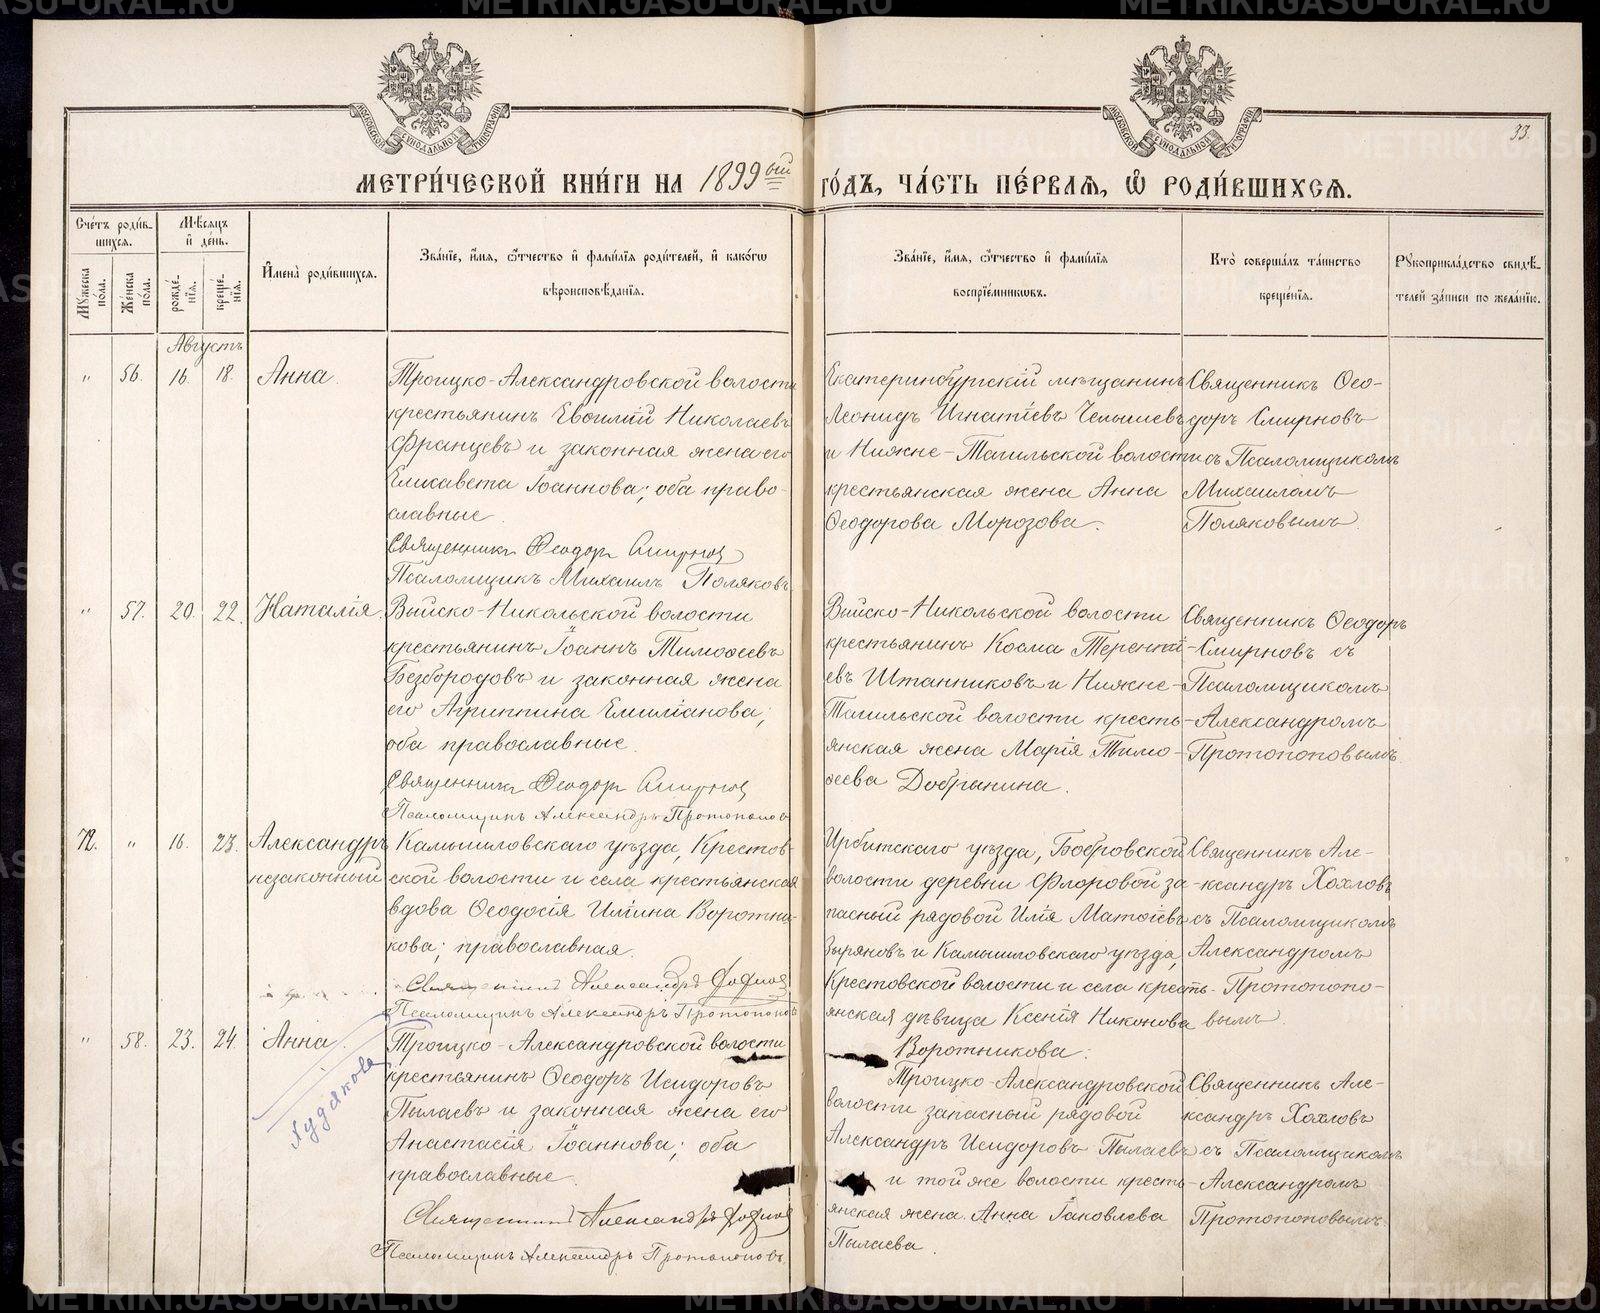 METRIKI.GASU-URAL.RU
33.
МЕТРИ́ЧЕСКОЙ КНИ́ГИ НА 1899ый ГО́ДЪ, ЧА́СТЬ ПЕ́РВАЯ, Ѿ РОДИ́ВШИХСЯ.
Счетъ роди́в-
шихся.
Мужеска
пола.
Женска
пола.
Мѣсяцъ
и день.
рожде́-
нія.
креще́-
нія.
Имена роди́вшихся.
Зва́ніе, и́мя, ѻ́тчество и фами́лія роди́телей, и како́гѡ
вѣроисповѣ́данія.
Зва́ніе, и́мя, ѻ́тчество и фами́лія
воспріе́мниковъ.
Кто̀ соверша́лъ та́инство
креще́нія.
Рукоприкла́дство свидѣ́-
телей за́писи по жела́нію.
Августъ
" 56. 16. 18. Анна.
Троицко-Александровской волости
крестьянинъ Евѳимій Николаевъ
Францевъ и законная жена его
Елисавета Іоаннова; оба право-
славные.
Священникъ Ѳеодоръ Смирновъ
Псаломщикъ Михаилъ Поляковъ
Екатеринбургскій мѣщанинъ
Леонидъ Игнатіевъ Челышевъ
и Нижне-Тагильской волости
крестьянская жена Анна
Ѳеодорова Морозова.
Священникъ Ѳео-
доръ Смирновъ
съ Псаломщикомъ
Михаиломъ
Поляковымъ.
" 57. 20. 22. Наталія.
Выйско-Никольской волости
крестьянинъ Іоаннъ Тимоѳеевъ
Безбородовъ и законная жена
его Агриппина Емиліанова;
оба православные.
Священникъ Ѳеодоръ Смирновъ
Псаломщикъ Александръ Протопоповъ
Выйско-Никольской волости
крестьянинъ Косма Теренті-
евъ Штанниковъ и Нижне-
Тагильской волости кресть-
янская жена Марія Тимо-
ѳеева Добрынина.
Священникъ Ѳеодоръ
Смирновъ съ
Псаломщикомъ
Александромъ
Протопоповымъ.
72. " 16. 23. Александръ
незаконный
Камышловскаго уѣзда, Крестов-
ской волости и села крестьянская
вдова Ѳеодосія Иліина Воротни-
кова; православная.
Священникъ Александръ Хохловъ
Псаломщикъ Александръ Протопоповъ
Ирбитскаго уѣзда, Бобровской
волости деревни Флоровой за-
пасный рядовой Илія Матѳіевъ
Зыряновъ и Камышловскаго уѣзда,
Крестовской волости и села кресть-
янская дѣвица Ксенія Никонова
Воротникова.
Священникъ Але-
ксандръ Хохловъ
съ Псаломщикомъ
Александромъ
Протопопо-
вымъ.
" 58. 23. 24. Анна.
Худякова
Троицко-Александровской волости
крестьянинъ Ѳеодоръ Исидоровъ
Пылаевъ и законная жена его
Анастасія Іоаннова; оба
православные.
Священникъ Александръ Хохловъ
Псаломщикъ Александръ Протопоповъ
Троицко-Александровской
волости запасный рядовой
Александръ Исидоровъ Пылаевъ
и той же волости кресть-
янская жена Анна Іаковлева
Пылаева.
Священникъ Але-
ксандръ Хохловъ
съ Псаломщикомъ
Александромъ
Протопоповымъ.